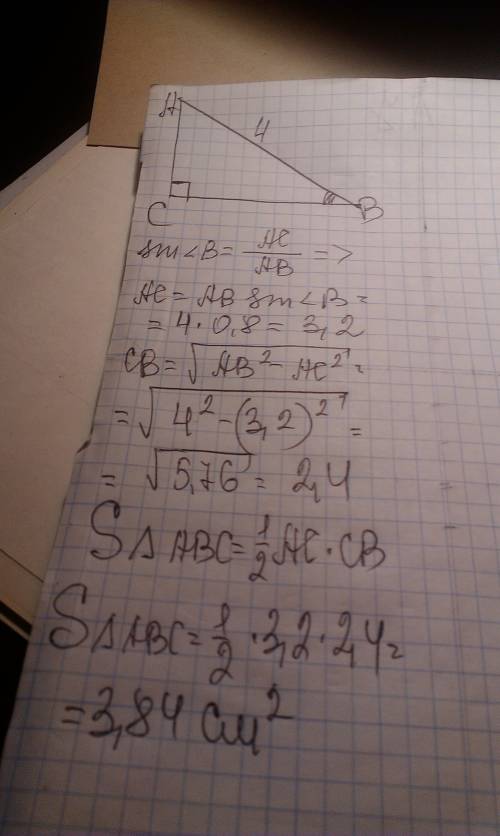 A
4
C B
sin∠B = AC/AB =>
AC = AB sin∠B =
= 4·0,8 = 3,2
CB = √(AB² - AC²) =
= √(4² - (3,2)²) =
= √5,76 = 2,4
S△ABC = 1/2 AC·CB
S△ABC = 1/2 · 3,2 · 2,4 =
= 3,84 см²